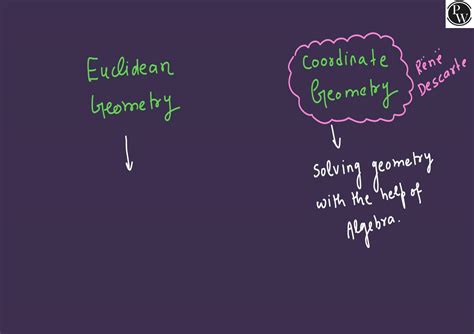 P
W
Euclidean
Geometry
Coordinate
Geometry
Rënë
Descarte
Solving geometry
with the help of
Algebra.